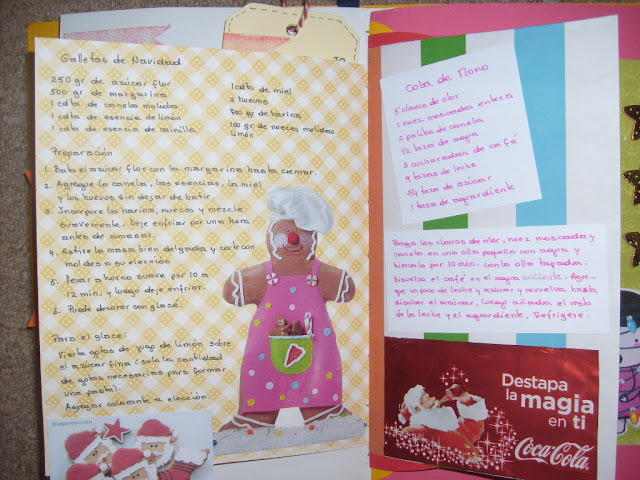 TO
Galletas de Navidad
250 gr de azúcar flor
500 gr de margarina
1 cdta de canela molida
1 cdta de esencia de limón
1 cdta de esencia de vainilla
1 cdta de miel
2 huevos
800 gr de harina
100 gr de nueces molidas
limón
Preparación
1. Bata el azúcar flor con la margarina hasta cremar.
2. Agregue la canela, las esencias, la miel
y los huevos sin dejar de batir.
3. Incorpore la harina, nueces y mezcle
suavemente. Deje enfriar por una hora
antes de amasar.
4. Estire la masa bien delgada y corte con
moldes a su elección
5. llevar a horno suave por 10 a
12 min. y luego deje enfriar.
6. Puede decorar con glacé.
Para el glacé:
Vierta gotas de jugo de limón sobre
el azúcar fina (solo la cantidad
de gotas necesarias para formar
una pasta).
Agregar colorante a elección.
Cola de Mono
5 clavos de olor
1 nuez moscada entera
2 palitos de canela
1/2 taza de agua
3 cucharadas de café
9 tazas de leche
3/4 taza de azúcar
1 taza de aguardiente
Ponga los clavos de olor, nuez moscada y
canela en una olla pequeña con agua y
hiervala por 10 min. con la olla tapada.
Disuelva el café en el agua caliente. Agre-
gue un poco de leche y azúcar y revuelva hasta
disolver el azúcar, luego añada el resto
de la leche y el aguardiente. Refrigere.
Destapa
la magia
en ti
Coca-Cola